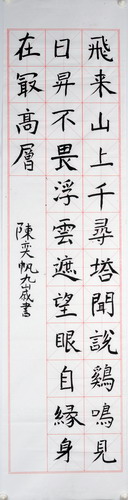 飛来山上千尋塔聞說鷄鳴見
日昇不畏浮雲遮望眼自緣身
在最高層
陳奕帆九歲書